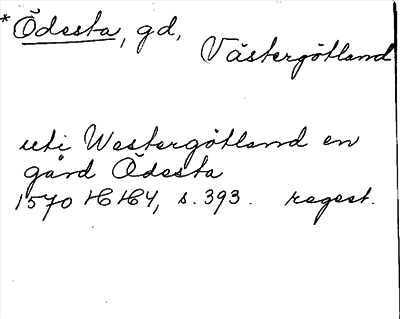 *Ödesta, gd,
Västergötland
uti Westergötland en
gård Ödesta
1570 HH4, s. 393. regest.